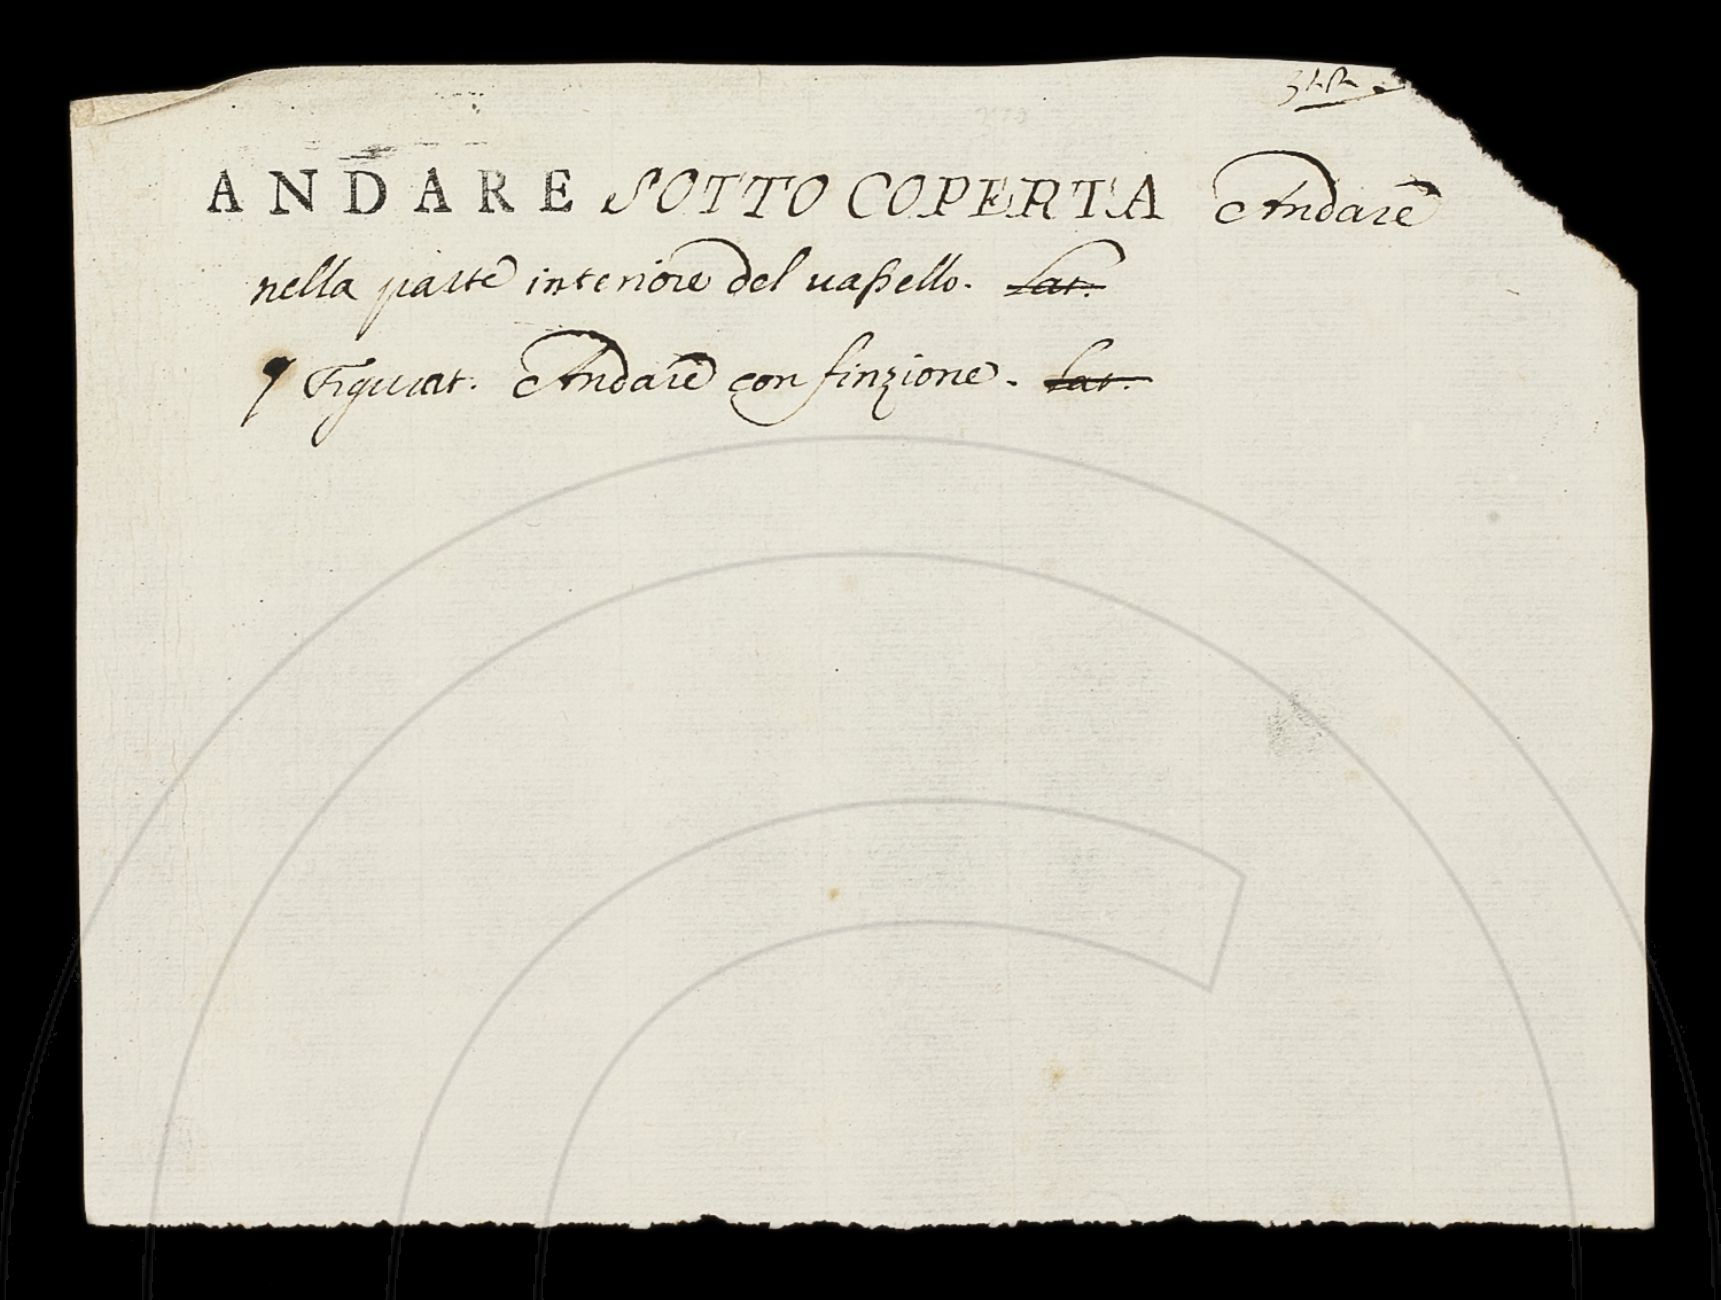 ANDARE SOTTO COPERTA Andare
nella parte interiore del vaßello. Lat.
¶ Figurat. Andare con finzione. Lat.